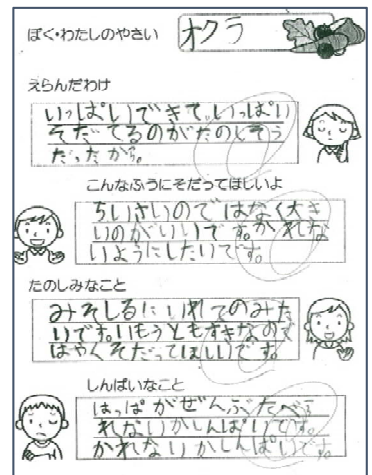 ぼく・わたしのやさい オクラ
えらんだわけ
いっぱいできて。いっぱい
そだてるのがたのしそう
だったから。
こんなふうにそだってほしいよ
ちいさいのではなく大き
いのがいいです。かれな
いようにしたいです。
たのしみなこと
みそしるにいれてのみた
いです。いもうともすきなので
はやくそだってほしいです。
しんぱいなこと
はっぱがぜんぶたべら
れないかしんぱいです。
かれないかしんぱいです